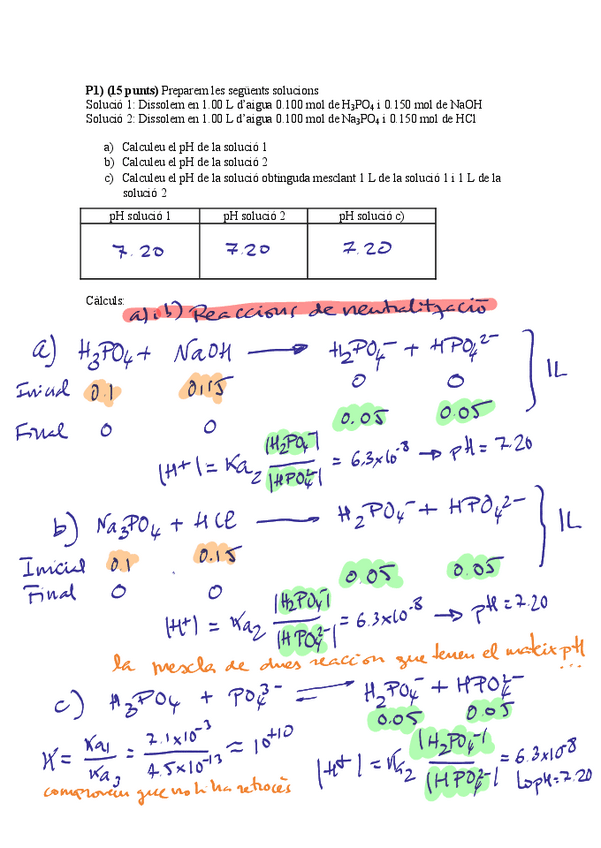 P1) (15 punts) Preparem les següents solucions
Solució 1: Dissolem en 1.00 L d'aigua 0.100 mol de H₃PO₄ i 0.150 mol de NaOH
Solució 2: Dissolem en 1.00 L d'aigua 0.100 mol de Na₃PO₄ i 0.150 mol de HCl
a) Calculeu el pH de la solució 1
b) Calculeu el pH de la solució 2
c) Calculeu el pH de la solució obtinguda mesclant 1 L de la solució 1 i 1 L de la
solució 2
pH solució 1 pH solució 2 pH solució c)
7.20 7.20 7.20
Càlculs:
a) i b) Reaccions de neutralització
a) H₃PO₄ + NaOH ⟶ H₂PO₄⁻ + HPO₄²⁻
Inicial 0.1 0.15 0 0 1L
Final 0 0 0.05 0.05
|H⁺| = Ka₂ |H₂PO₄⁻| / |HPO₄²⁻| = 6.3x10⁻⁸ → pH = 7.20
b) Na₃PO₄ + HCl ⟶ H₂PO₄⁻ + HPO₄²⁻
Inicial 0.1 0.15 1L
Final 0 0 0.05 0.05
|H⁺| = Ka₂ |H₂PO₄⁻| / |HPO₄²⁻| = 6.3x10⁻⁸ → pH = 7.20
la mescla de dues reaccion que tenen el mateix pH ...
c) H₃PO₄ + PO₄³⁻ ⇌ H₂PO₄⁻ + HPO₄²⁻
0.05 0.05
K = Ka₁ / Ka₃ = 7.1x10⁻³ / 4.5x10⁻¹³ ≈ 10⁺¹⁰
|H⁺| = K₂ |H₂PO₄⁻| / |HPO₄²⁻| = 6.3x10⁻⁸
↳ pH = 7.20
que no hi ha retrocés